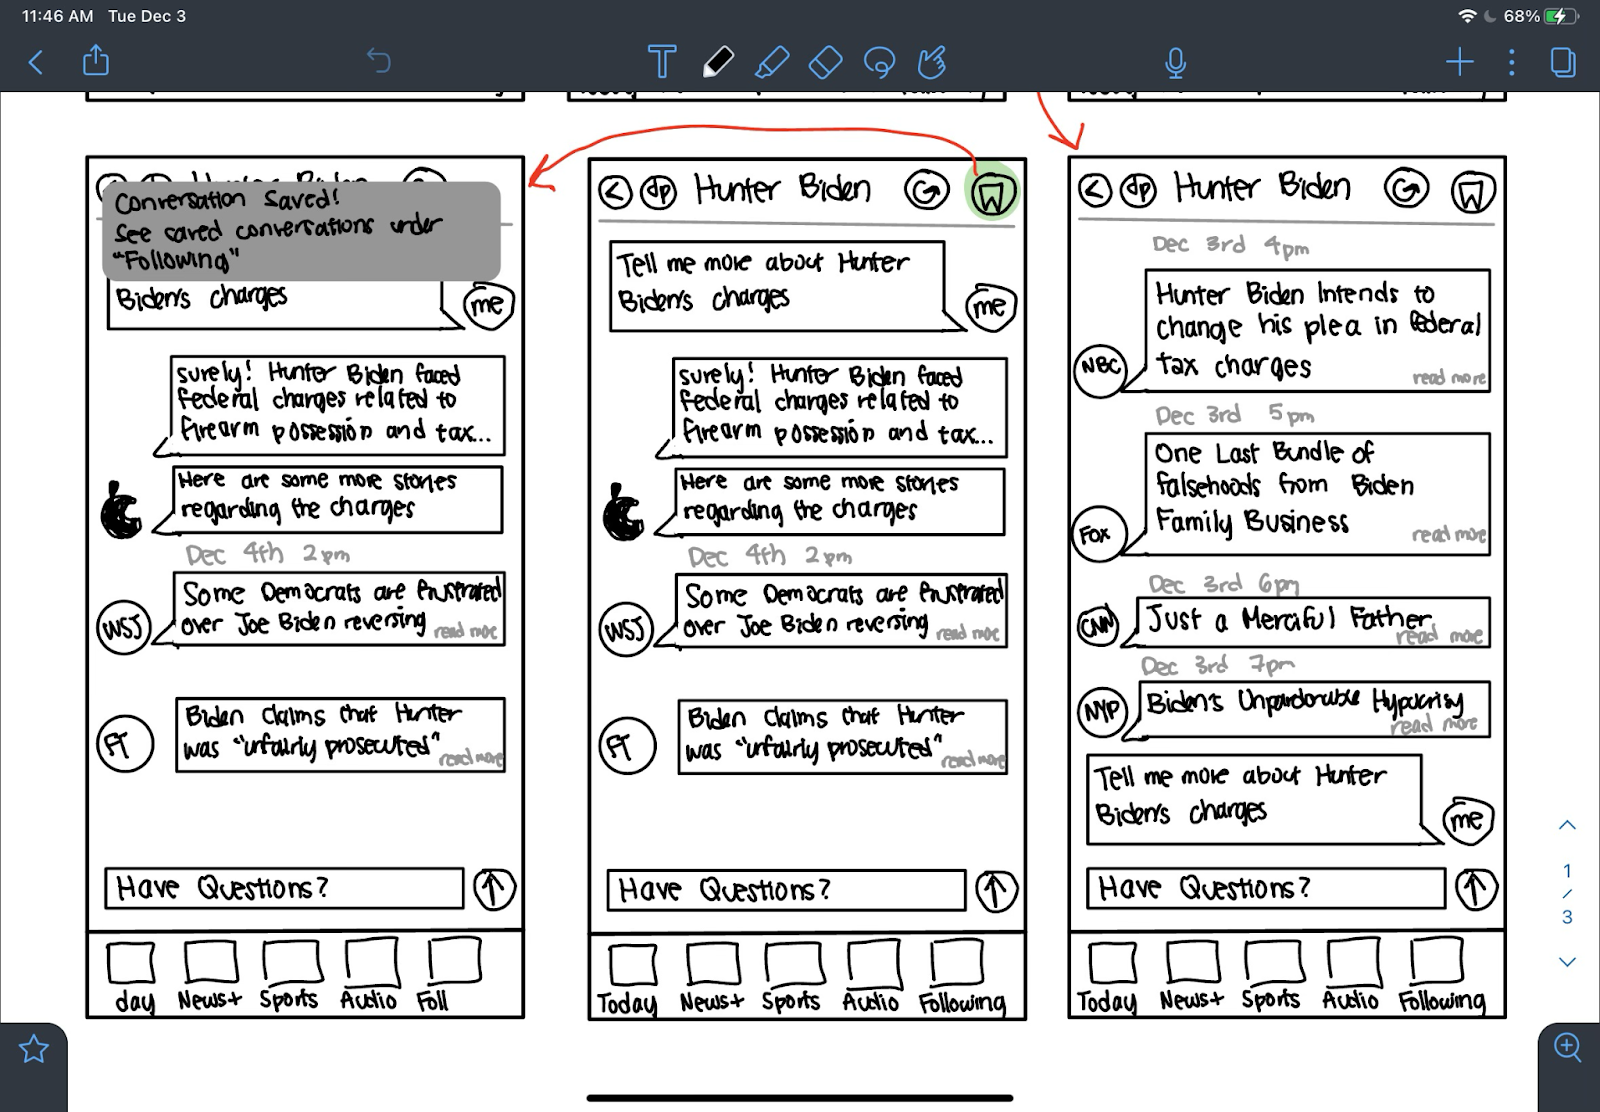 11:46 AM Tue Dec 3
68%
Hunter Biden
Conversation Saved!
See saved conversations under
"Following"
Biden's charges
me
surely! Hunter Biden faced
federal charges related to
firearm possession and tax...
Here are some more stories
regarding the charges
Dec 4th 2pm
WSJ
Some Democrats are frustrated
over Joe Biden reversing
read more
FT
Biden claims that Hunter
was "unfairly prosecuted"
read more
Have Questions?
day News+ Sports Audio Foll
dp Hunter Biden
Tell me more about Hunter
Biden's charges
me
surely! Hunter Biden faced
federal charges related to
firearm possession and tax...
Here are some more stories
regarding the charges
Dec 4th 2pm
WSJ
Some Democrats are frustrated
over Joe Biden reversing
read more
FT
Biden claims that Hunter
was "unfairly prosecuted"
read more
Have Questions?
Today News+ Sports Audio Following
dp Hunter Biden
Dec 3rd 4pm
Hunter Biden Intends to
change his plea in federal
tax charges
read more
NBC
Dec 3rd 5pm
One Last Bundle of
falsehoods from Biden
Family Business
read more
Fox
Dec 3rd 6pm
CNN
Just a Merciful Father
read more
Dec 3rd 7pm
NYP
Biden's Unpardonable Hypocrisy
read more
Tell me more about Hunter
Biden's charges
me
Have Questions?
Today News+ Sports Audio Following
1
/
3